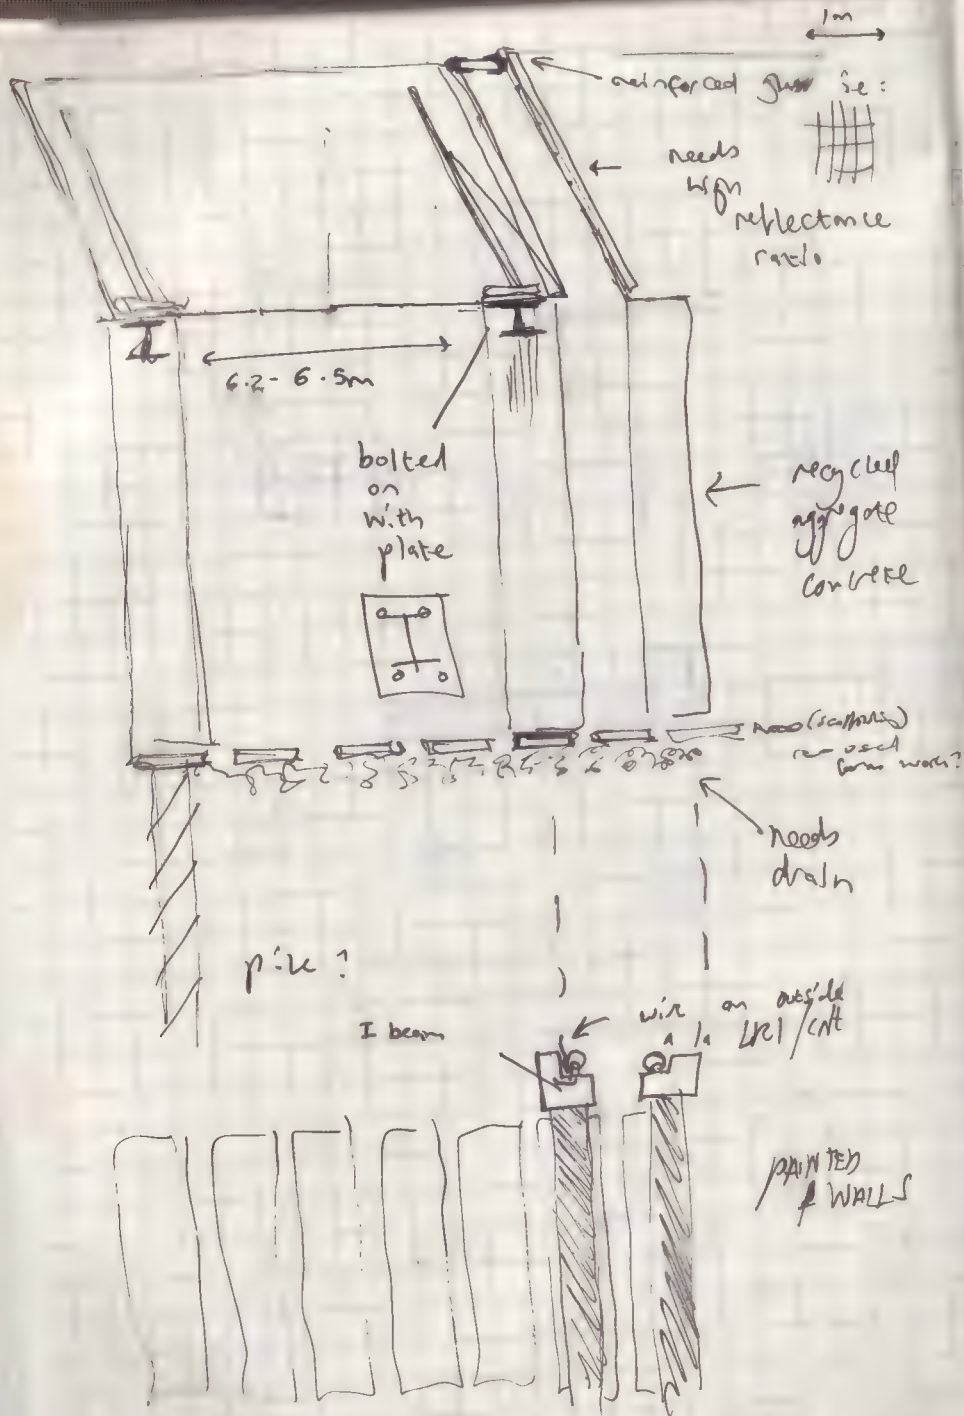 1m
reinforced glass i.e:
needs
high
reflectance
ratio
6.2 - 6.5m
bolted
on
with
plate
recycled
aggregate
concrete
(scaffolding)
work?
needs
drain
pile?
I beam
wire on outside
a la
PAINTED
WALLS